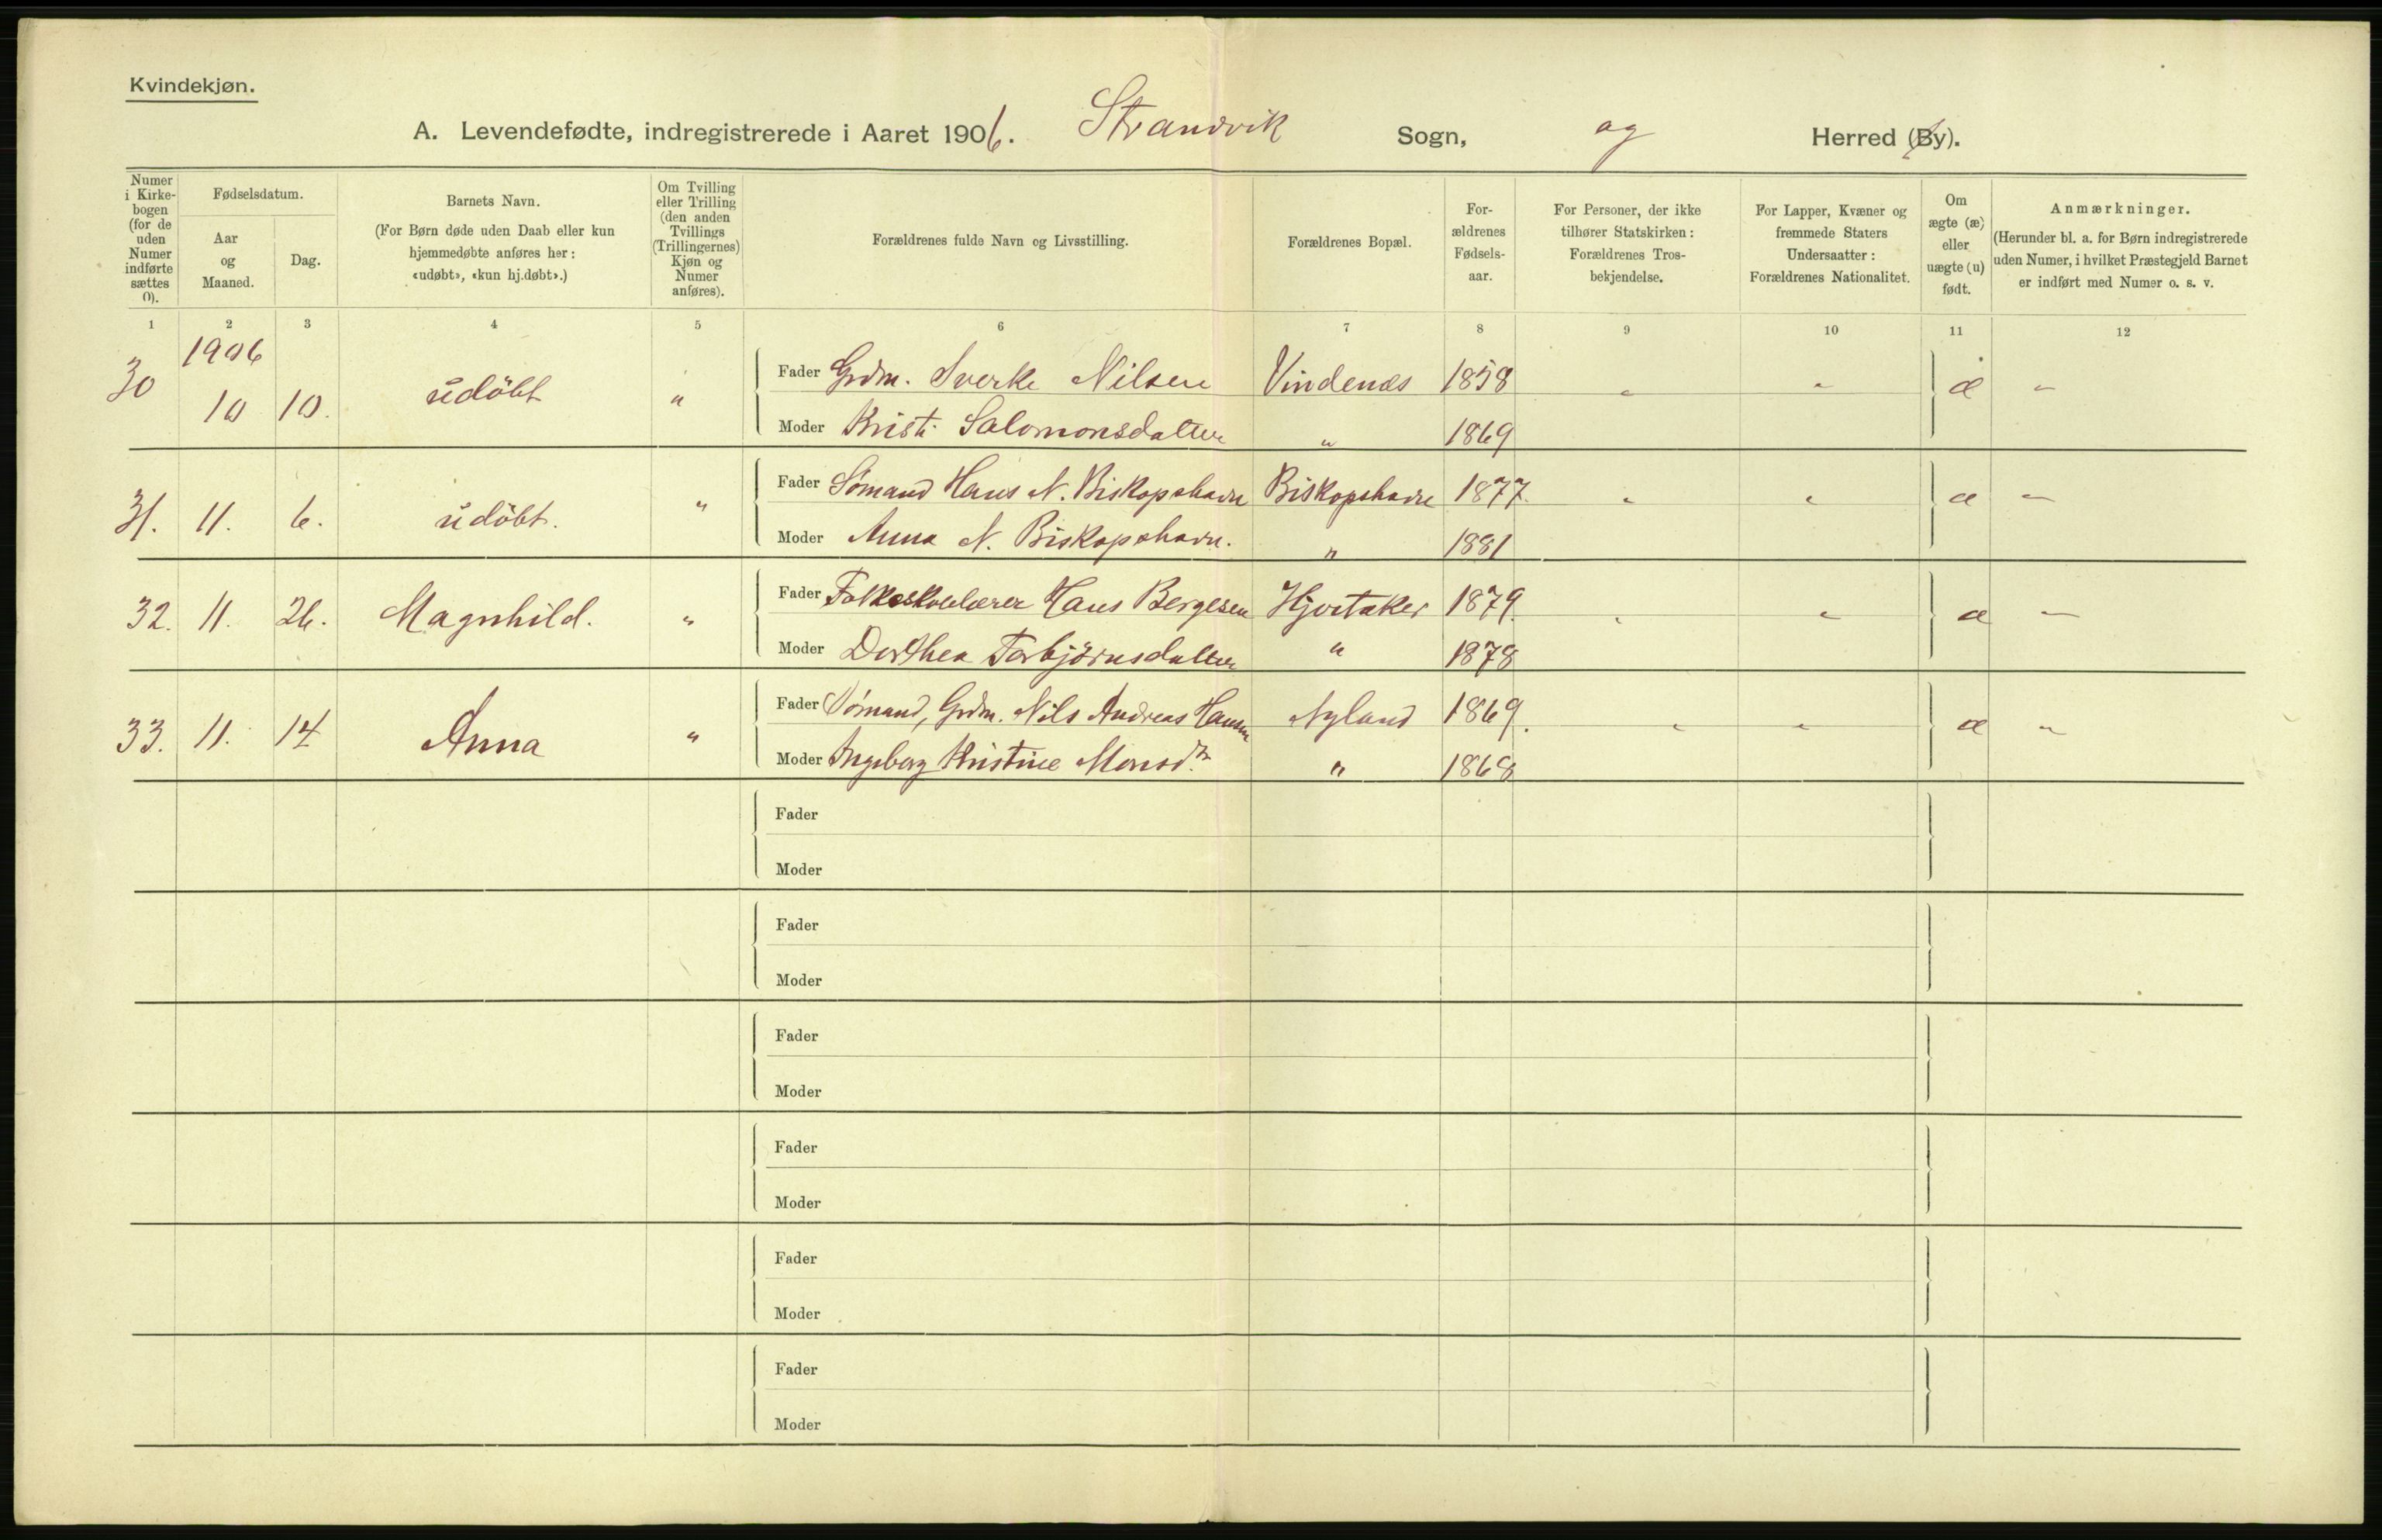 Kvindekjøn.
A. Levendefødte, indregistrerede i Aaret 1906. Strandvik Sogn, og Herred (By).
Numer i Kirke-bogen (for de uden Numer indførte sættes 0).
Fødselsdatum.
Aar og Maaned.
Dag.
Barnets Navn.
(For Børn døde uden Daab eller kun
hjemmedøbte anføres her:
«udøbt», «kun hj.døbt».)
Om Tvilling
eller Trilling
(den anden
Tvillings
(Trillingernes)
Kjøn og
Numer
anføres).
Forældrenes fulde Navn og Livsstilling.
Forældrenes Bopæl.
For-
ældrenes
Fødsels-
aar.
For Personer, der ikke
tilhører Statskirken:
Forældrenes Tros-
bekjendelse.
For Lapper, Kvæner og
fremmede Staters
Undersaatter:
Forældrenes Nationalitet.
Om
ægte (æ)
eller
uægte (u)
født.
Anmærkninger.
(Herunder bl. a. for Børn indregistrerede
uden Numer, i hvilket Præstegjeld Barnet
er indført med Numer o. s. v.
1 2 3 4 5 6 7 8 9 10 11 12
1906
30 10 10. udöbt " Fader Grdm. Sverke Nilsen Vindenes 1858 " " æ "
Moder Kristi Salomonsdatter " 1869
31. 11. 6. udöbt. " Fader Sømand Hans N. Biskopshavn Biskopshavn 1877. " " æ "
Moder Anna N. Biskopshavn. " 1881
32. 11. 26. Magnhild. " Fader Folkeskolelærer Hans Bergesen Hjortaker 1879. " " æ "
Moder Dorthea Torbjörnsdatter " 1878
33. 11. 14 Anna " Fader Sømand, Grdm. Nils Andreas Hansen Nyland 1869. " " æ "
Moder Ingeborg Kristine Monsdtr. " 1868
Fader
Moder
Fader
Moder
Fader
Moder
Fader
Moder
Fader
Moder
Fader
Moder